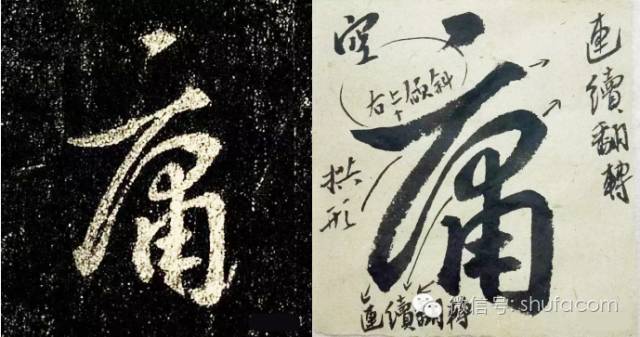 庸
庸
空
右上傾斜
拱形
連續翻轉
連續翻轉
微信号: shufacom